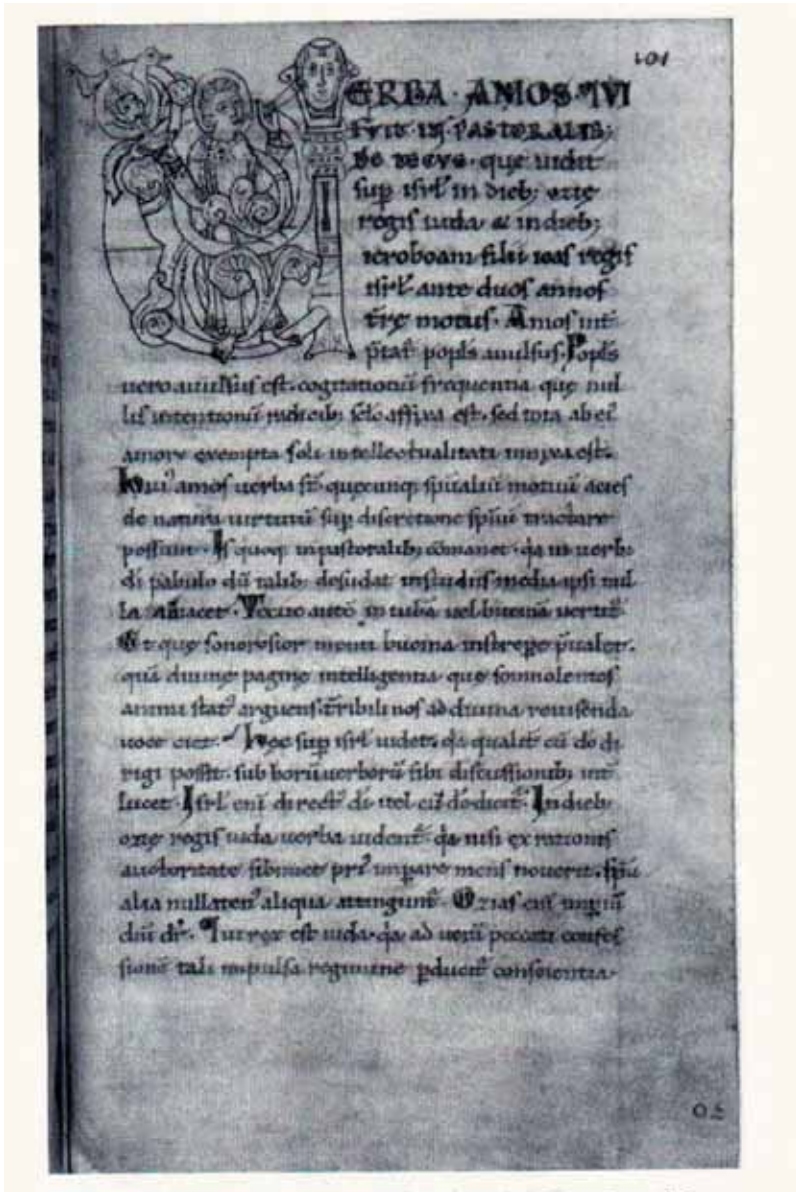 101
ERBA · AMOS · QVI
FVIT IN PASTORALIB;
DE TECVE · quę uidit
sup isrl in dieb; ozię
regis iuda & in dieb;
ieroboam filii ioas regis
isrl ante duos annos
trę motus · Amos int
ptat popls auulsus · Popls
uero auulsus est · cogitationū frequentia quę nul
lis intentionū radicib; sclo affixa est · sed tota ab ei
amore exempta soli intellectualitati innixa est ·
amos uerba st quęcunq; spitaliū motuū acies
de uirtutū sup discretione tractare
possunt · Is quoq; in pastoralib; cōmanet · qa in uerbi
di pabulo dū talib; desudat in studiis media ipsi nul
la · Tecue autē in tubā uel buccina uertit
Et quę sonorosior menti buccina instrepe pualet ·
quā diuinę paginę intelligentia · quę somnolentos
animi stat arguens · tribili nos ad diuina reuisenda
uoce ciet · Hęc sup isrl uidet · qa qualit cū do di
rigi possit · sub horū uerborū sibi discussionib; int
lucet · Isrl eni direct di uel cū do dicit · In dieb;
ozię regis iuda uerba uident · qa nisi ex rationis
auctoritate sibimet pri impare mens nouerit ·
alia nullaten aliqua attingunt · Ozias eni impiū
dni dr · Qui rex est iuda · qa ad uerū peccati confes
sionē tali impulsa regimine pducit conscientia ·